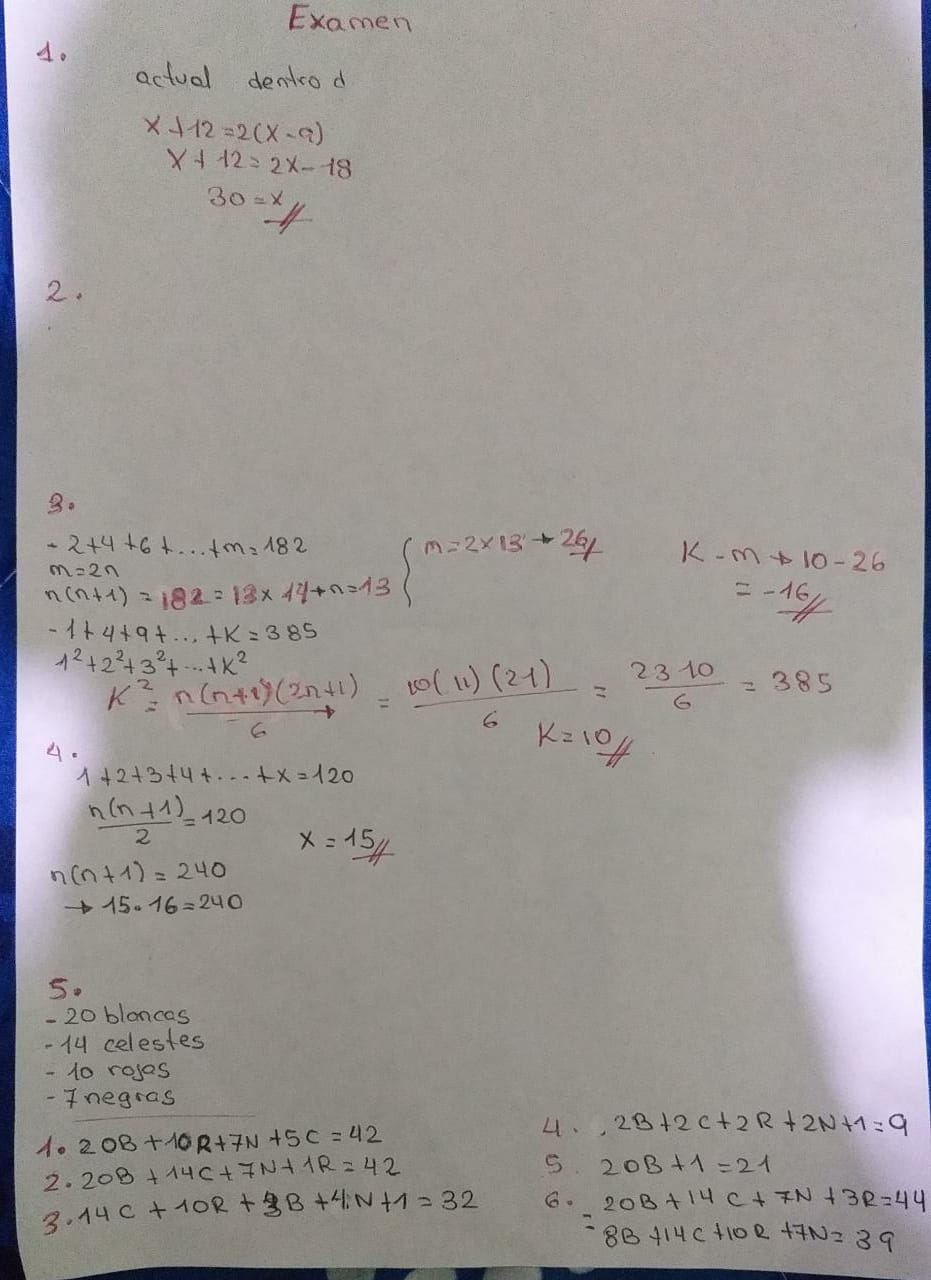 Examen
1.
actual dentro d
x+12=2(x-9)
x+12=2x-18
30=x
2.
3.
- 2+4+6+...+m=182
m=2n
n(n+1)=182=13x14→n=13
m=2x13→26
K-m→10-26
=-16
-1+4+9+...+K=385
1²+2²+3²+...+K²
K²=n(n+1)(2n+1)/6=10(11)(21)/6=2310/6=385
K=10
4.
1+2+3+4+...+x=120
n(n+1)/2=120
x=15
n(n+1)=240
→15.16=240
5.
-20 blancas
-14 celestes
-10 rojas
-7 negras
1. 20B+10R+7N+5C=42
2. 20B+14C+7N+1R=42
3. 14C+10R+3B+4N+1=32
4. 2B+2C+2R+2N+1=9
5. 20B+1=21
6. 20B+14C+7N+3R=44
= 8B+14C+10R+7N=39